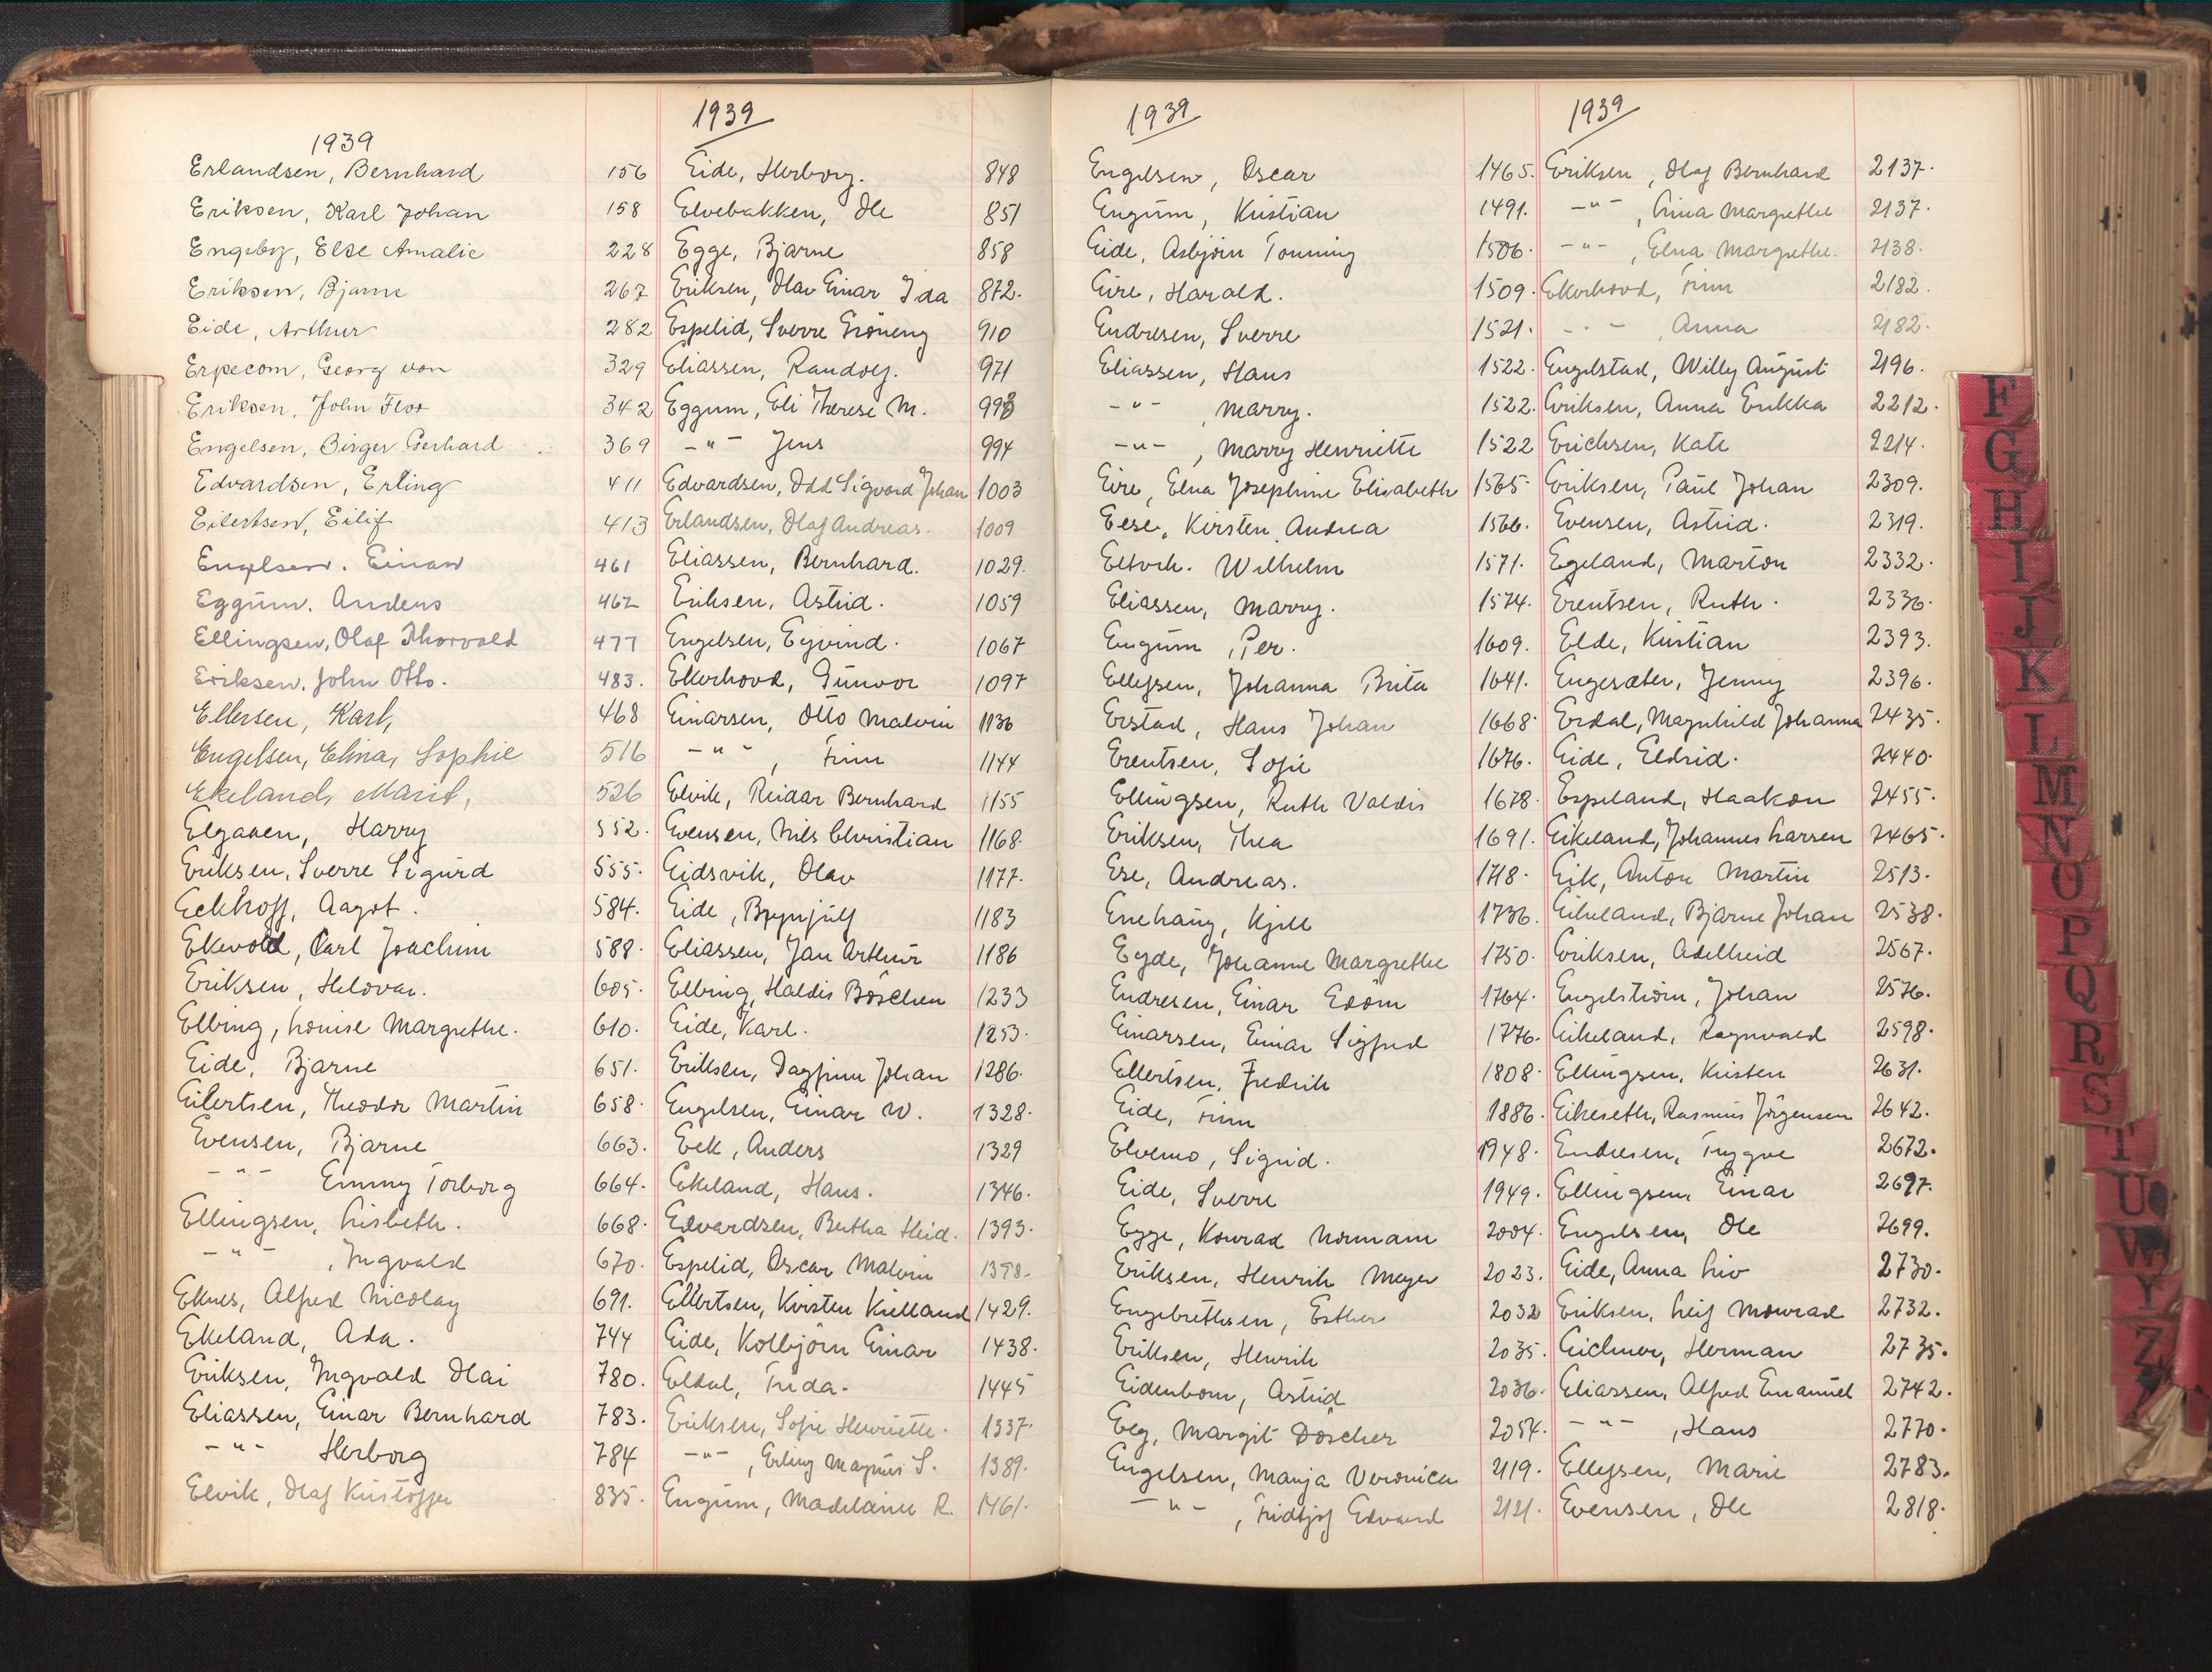 1939
Erlandsen, Bernhard 156
Eriksen, Karl Johan 158
Engeby, Else Amalie 228
Eriksen, Bjarne 267
Eide, Arthur 282
Erpecom, Georg von 329
Eriksen, John Floo 342
Engelsen, Birger Gerhard 369
Edvardsen, Erling 411
Eilertsen, Eilif 413
Engelsen. Einar 461
Eggum. Anders 462
Ellingsen, Olaf Thorvald 477
Eriksen. John Otto. 483.
Ellersen, Karl, 468
Engelsen, Elina, Sophie 516
Ekeland, Marit, 526
Elgaaen, Harry 552.
Eriksen, Sverre Sigurd 555.
Eckhoff, Aagot. 584.
Ekevold, Carl Joachim 588.
Eriksen, Heldvar. 605.
Elbing, Louise Margrethe. 610.
Eide, Bjarne 651.
Eilertsen, Theodor Martin 658.
Evensen, Bjarne 663.
-"- Emmy Torborg 664.
Ellingsen, Lisbeth. 668.
-"-, Ingvald 670.
Eknes, Alfred Nicolay 691.
Ekeland, Ada. 744
Eriksen, Ingvald Olai 780.
Eliassen, Einar Bernhard 783.
-"- Herborg 784
Elvik, Olaf Kristoffer 835.
1939
Eide, Herborg. 848
Elvebakken, Ole 851
Egge, Bjarne 858
Eriksen, Olav Einar Ida 872.
Espelid, Sverre Gröneng 910
Eliassen, Randolf. 971
Eggum, Eli Therese M. 993
-"- Jens 994
Edvardsen, Odd Sigvard Johan 1003
Erlandsen, Olaf Andreas. 1009
Eliassen, Bernhard. 1029.
Eriksen, Astrid. 1059
Engelsen, Eyvind. 1067
Ekerhovd, Gunvor 1097
Einarsen, Otto Malvin 1136
-"-, Finn 1144
Elvik, Reidar Bernhard 1155
Evensen, Nils Christian 1168.
Eidsvik, Olav 1177.
Eide, Brynjulf 1183
Eliassen, Jan Arthur 1186
Elbing, Haldis Böschen 1233
Eide, Karl. 1253.
Eriksen, Dagfinn Johan 1286.
Engelsen, Einar W. 1328.
Eek, Anders 1329
Ekeland, Hans. 1346.
Edvardsen, Bertha Heid. 1393.
Espelid, Oscar Malvin 1398.
Ellertsen, Kirsten Kielland 1429.
Eide, Kolbjörn Einar 1438.
Eldal, Frida. 1445
Eriksen, Sofie Henriette. 1337.
-"-, Erling Magnus S. 1389.
Engum, Madelaine R. 1461.
1939
Engelsen, Oscar 1465.
Engum, Kristian 1491.
Eide, Asbjörn Tonning 1506.
Eire, Harald. 1509.
Endresen, Sverre 1521.
Eliassen, Hans 1522.
-"-, Marry. 1522.
-"-, Marry Henriette 1522
Eire, Elna Josephine Elisabeth 1565.
Eese, Kirsten Andrea 1566.
Eltvik. Wilhelm 1571.
Eliassen, Marry. 1574.
Engum, Per. 1609.
Ellefsen, Johanna Brita 1641.
Erstad, Hans Johan 1668.
Erentsen, Sofie 1676.
Ellingsen, Ruth Valdis 1678.
Eriksen, Thea 1691.
Ese, Andreas. 1718.
Enehaug, Kjell 1736.
Eyde, Johanne Margrethe 1750.
Endresen, Einar Edöm 1764.
Einarsen, Einar Sigfred 1776.
Ellertsen, Fredrik 1808.
Eide, Finn 1886.
Elvemo, Sigrid. 1948.
Eide, Sverre 1949.
Egge, Konrad Normann 2004.
Eriksen, Henrik Meyer 2023.
Engebrethsen, Esther 2032
Eriksen, Henrik 2035.
Eidenbom, Astrid 2036.
Eeg, Margit Döscher 2054.
Engelsen, Manja Veronica 2119.
-"-, Fridtjof Edvard 2121.
1939
Eriksen, Olaf Bernhard 2137.
-"-, Anna Margrethe 2137.
-"-, Elna Margrethe. 2138.
Ekerhovd, Finn 2182.
-"- Anna 2182.
Engelstad, Willy August 2196.
Eriksen, Anna Erikka 2212.
Erichsen, Kate 2214.
Eriksen, Paul Johan 2309.
Evensen, Astrid. 2319.
Egeland, Marton 2332.
Erentsen, Ruth. 2336.
Elde, Kristian 2393.
Engesæter, Jenny 2396.
Erdal, Magnhild Johanna 2435.
Eide, Eldrid. 2440.
Espeland, Haakon 2455.
Eikeland, Johannes Larsen 2465.
Eik, Anton Martin 2513.
Eikeland, Bjarne Johan 2538.
Eriksen, Adelheid 2567.
Engelström, Johan 2576.
Eikeland, Ragnvald 2598.
Ellingsen, Kristen 2631.
Eikeseth, Rasmus Jörgensen 2642.
Endresen, Trygve 2672.
Ellingsen, Einar 2697.
Engelsen, Ole 2699.
Eide, Anna Liv 2730.
Eriksen, Leif Monrad 2732.
Eichner, Herman 2735.
Eliassen, Alfred Emanuel 2742.
-"-, Hans 2770.
Ellefsen, Marie 2783.
Evensen, Ole 2818.
F
G
H
I
J
K
L
M
N
O
P
Q
R
S
T
U
W
Y
Z